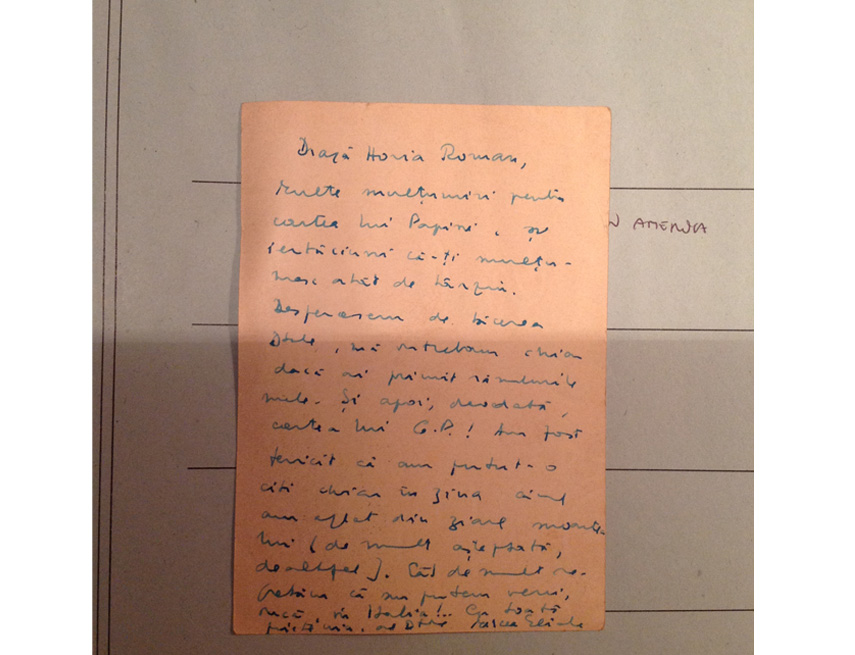 Dragă Horia Roman,
Multe mulțumiri pentru
cartea lui Papini, și
iertăciune că-ți mulțu-
mesc atât de târziu.
Desperasem de tăcerea
Dtale, mă întrebam chiar
dacă ai primit rândurile
mele. Și apoi, deodată,
cartea lui G.P.! Am fost
fericit că am putut-o
citi chiar în ziua când
am aflat din ziare moartea
lui (de mult așteptată,
dealtfel). Cât de mult re-
gretăm că nu putem veni,
încă, în Italia!.. Cu toată
prietenia, al Dtale Mircea Eliade
AMERICA